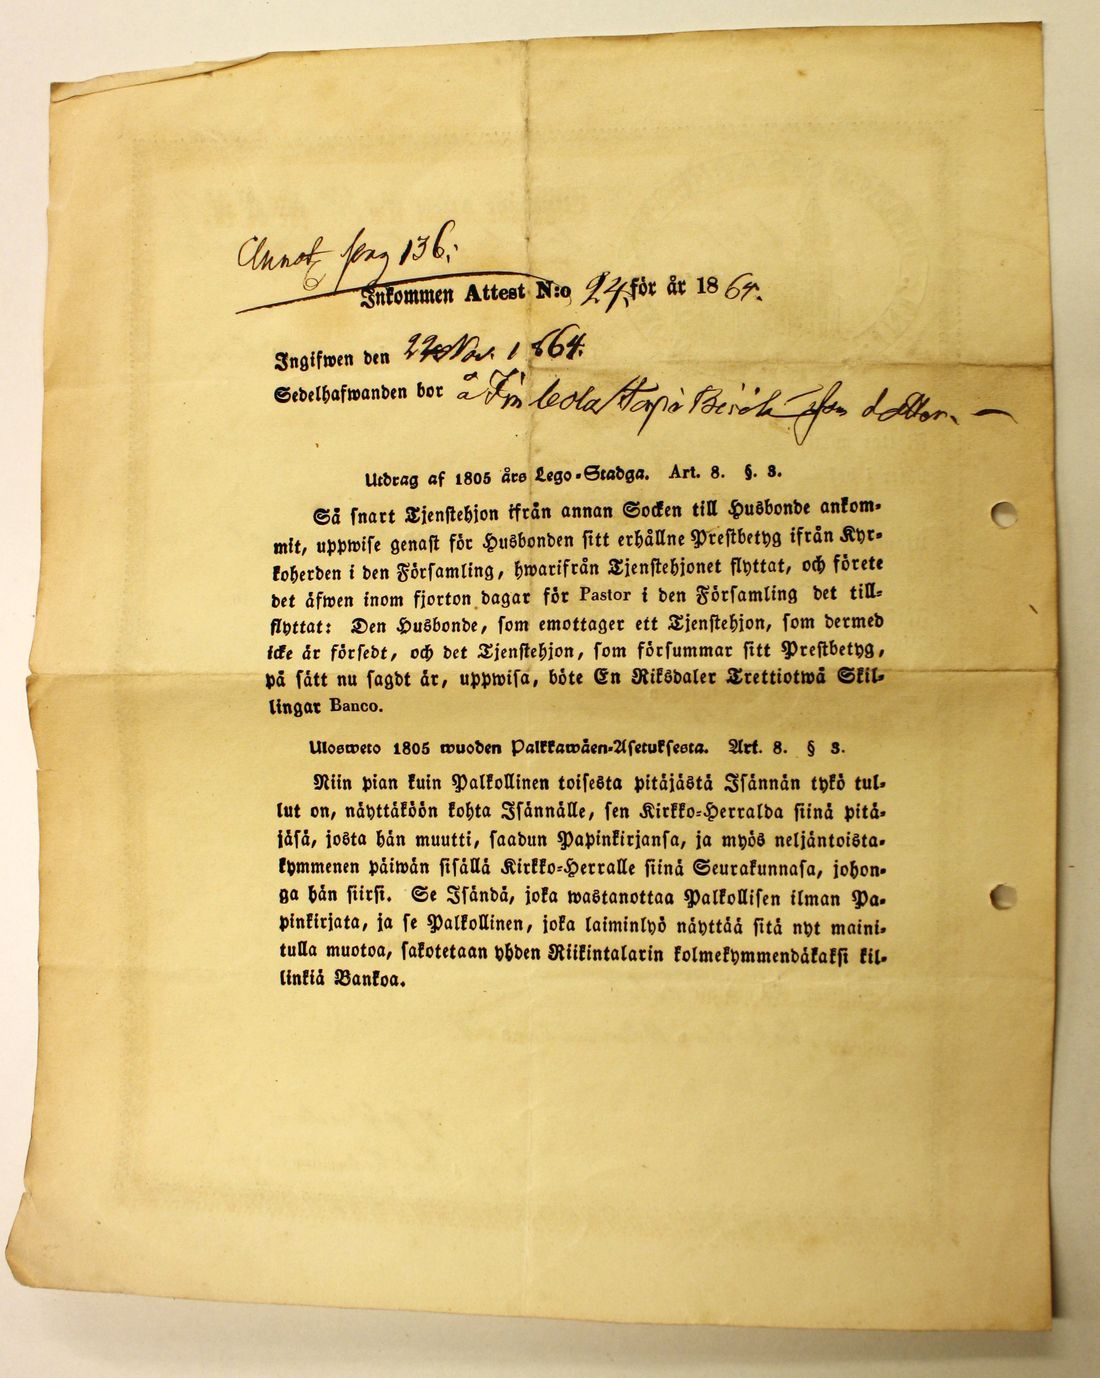 Annot pag 136.
Inkommen Attest N:o 24 för år 1864.
Ingifwen den 22 Nov. 1864.
Sedelhafwanden bor å
Utdrag af 1805 års Lego-Stadga. Art. 8. §. 3.
Så snart Tjenstehjon ifrån annan Socken till Husbonde ankom-
mit, uppwise genast för Husbonden sitt erhållne Prestbetyg ifrån Kyr-
koherden i den Församling, hwarifrån Tjenstehjonet flyttat, och förete
det äfwen inom fjorton dagar för Pastor i den Församling det till-
flyttat: Den Husbonde, som emottager ett Tjenstehjon, som dermed
icke är försedt, och det Tjenstehjon, som försummar sitt Prestbetyg,
på sätt nu sagdt är, uppwisa, böte En Riksdaler Trettiotwå Skil-
lingar Banco.
Ulosweto 1805 wuoden Palkkawäen-Asetuksesta. Art. 8. § 3.
Niin pian kuin Palkollinen toisesta pitäjästä Isännän tykö tul-
lut on, näyttäköön kohta Isännälle, sen Kirkko-Herralda siinä pitä-
jäsä, josta hän muutti, saadun Papinkirjansa, ja myös neljäntoista-
kymmenen päiwän sisällä Kirkko-Herralle siinä Seurakunnasa, johon-
ga hän siirsi. Se Isändä, joka wastanottaa Palkollisen ilman Pa-
pinkirjata, ja se Palkollinen, joka laiminlyö näyttää sitä nyt maini-
tulla muotoa, sakotetaan yhden Riikintalarin kolmekymmendäkaksi kil-
linkiä Bankoa.